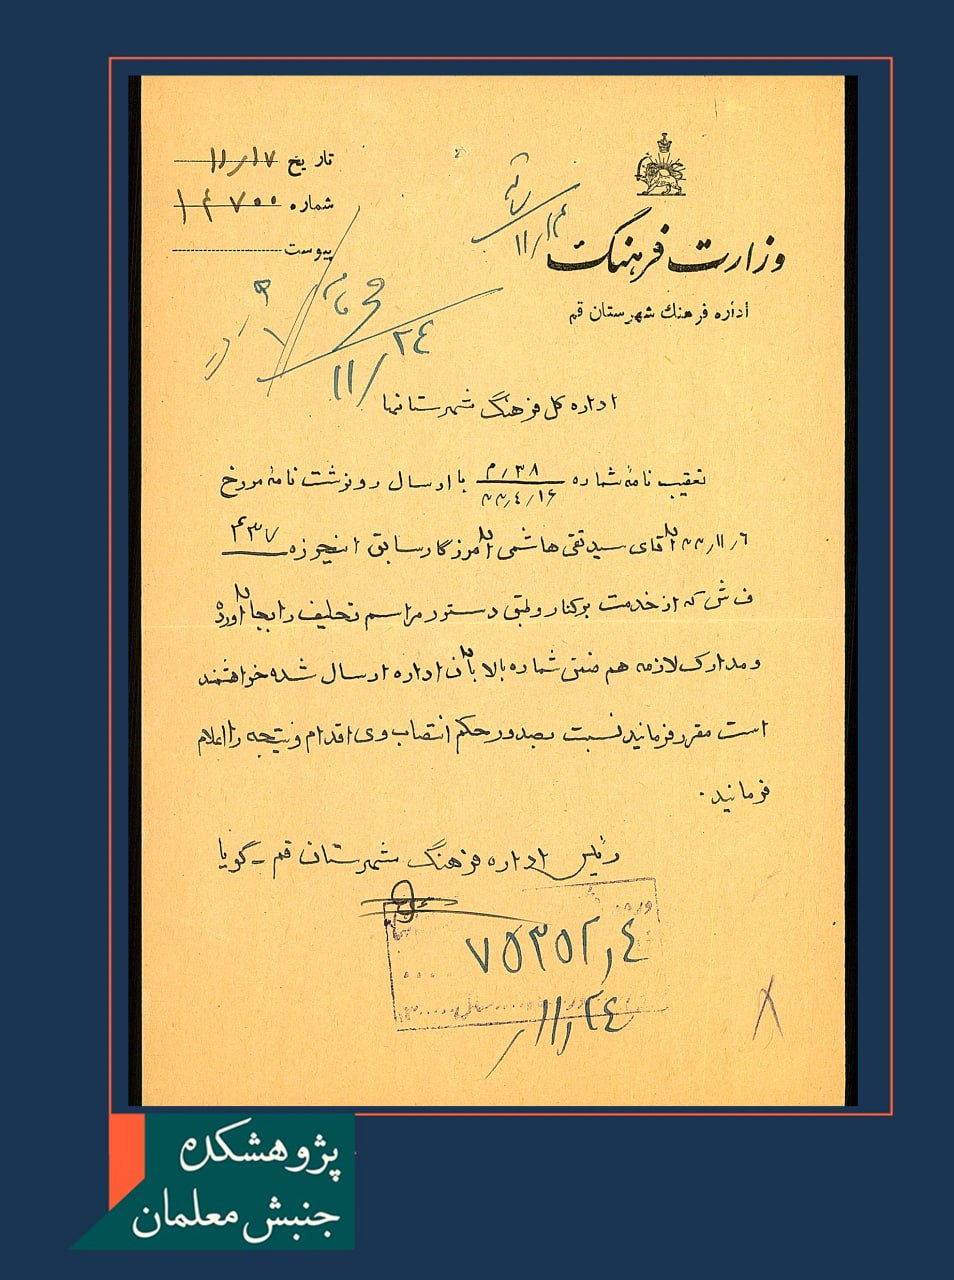 تاریخ ۱۱/۱۷
شماره ۱۴۷۰۰
پیوست
وزارت فرهنگ
اداره فرهنگ شهرستان قم
۱۱/۱۴
۱۱/۲۴
اداره کل فرهنگ شهرستانها
تعقیب نامه شماره ۳۸ر م / ۳۳٫۴٫۱۶ با ارسال رونوشت نامه مورخ
۳۳٫۱۱٫۶ آقای سید تقی هاشمی آموزگار سابق این حوزه ۴۳۷
ف ش که از خدمت برکنار و طبق دستور مراسم تحلیف را بجا آورده
و مدارک لازمه هم ضمن شماره بالا بآن اداره ارسال شده خواهشمند
است مقرر فرمائید نسبت بصدور حکم انتصاب وی اقدام و نتیجه را اعلام
فرمائید.
رئیس اداره فرهنگ شهرستان قم - گویا
۷۵۳۵۲٫۴
۱۱٫۲۴
پژوهشکده
جنبش معلمان